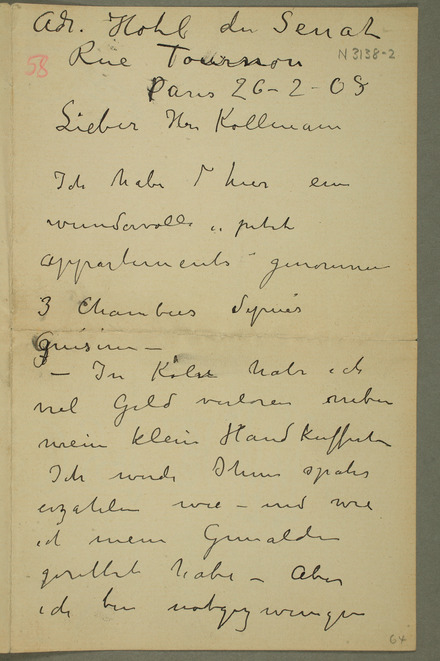 Adr. Hotel du Senat
Rue Tournon
N 3138-2
58
Paris 26-2-03
Lieber Herr Kollmann
Ich habe hier ein
wundervolle "petit
appartements" genommen
3 Chambres
Cuisine —
— In Köln habe ich
viel Geld verloren neben
mein klein Handkufferten
Ich werde Ihnen später
erzählen wie — und wie
ich mein Gemälden
gerettet habe — Aber
ich bin notgezwungen
64